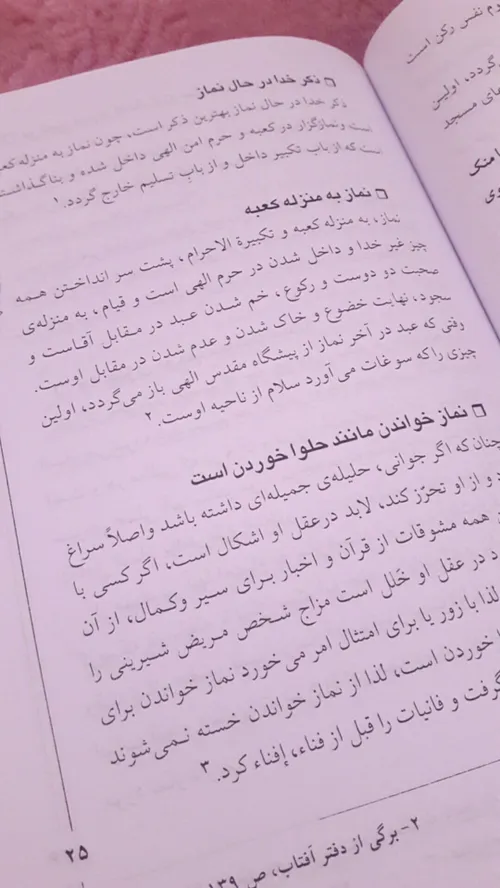 ذکر خدا در حال نماز
ذکر خدا در حال نماز بهترین ذکر است، چون نماز به منزله کعبه
است و نمازگزار در کعبه و حرم امن الهی داخل شده و بنا گذاشته
است که از باب تکبیر داخل و از باب تسلیم خارج گردد.۱
نماز به منزله کعبه
نماز، به منزله کعبه و تکبیرة الاحرام، پشت سر انداختن همه
چیز غیر خدا و داخل شدن در حرم الهی است و قیام، به منزله‌ی
صحبت دو دوست و رکوع، خم شدن عبد در مقابل آقاست و
سجود، نهایت خضوع و خاک شدن و عدم شدن در مقابل اوست.
وقتی که عبد در آخر نماز از پیشگاه مقدس الهی باز می‌گردد، اولین
چیزی را که سوغات می‌آورد سلام از ناحیه اوست.۲
نماز خواندن مانند حلوا خوردن است
چنان که اگر جوانی، حلیله‌ی جمیله‌ای داشته باشد و اصلاً سراغ
و از او تحرّز کند، لابد در عقل او اشکال است، اگر کسی با
همه مشوقات از قرآن و اخبار برای سیر و کمال، از آن
در عقل او خَلَل است مزاج شخص مریض شیرینی را
لذا با زور یا برای امتثال امر می‌خورد نماز خواندن برای
خوردن است، لذا از نماز خواندن خسته نمی‌شوند
گرفت و فانیات را قبل از فناء، إفناء کرد.۳
۲- برگی از دفتر آفتاب، ص
۲۵
دم نفس رکن است
گردد، اولین
های مسجد